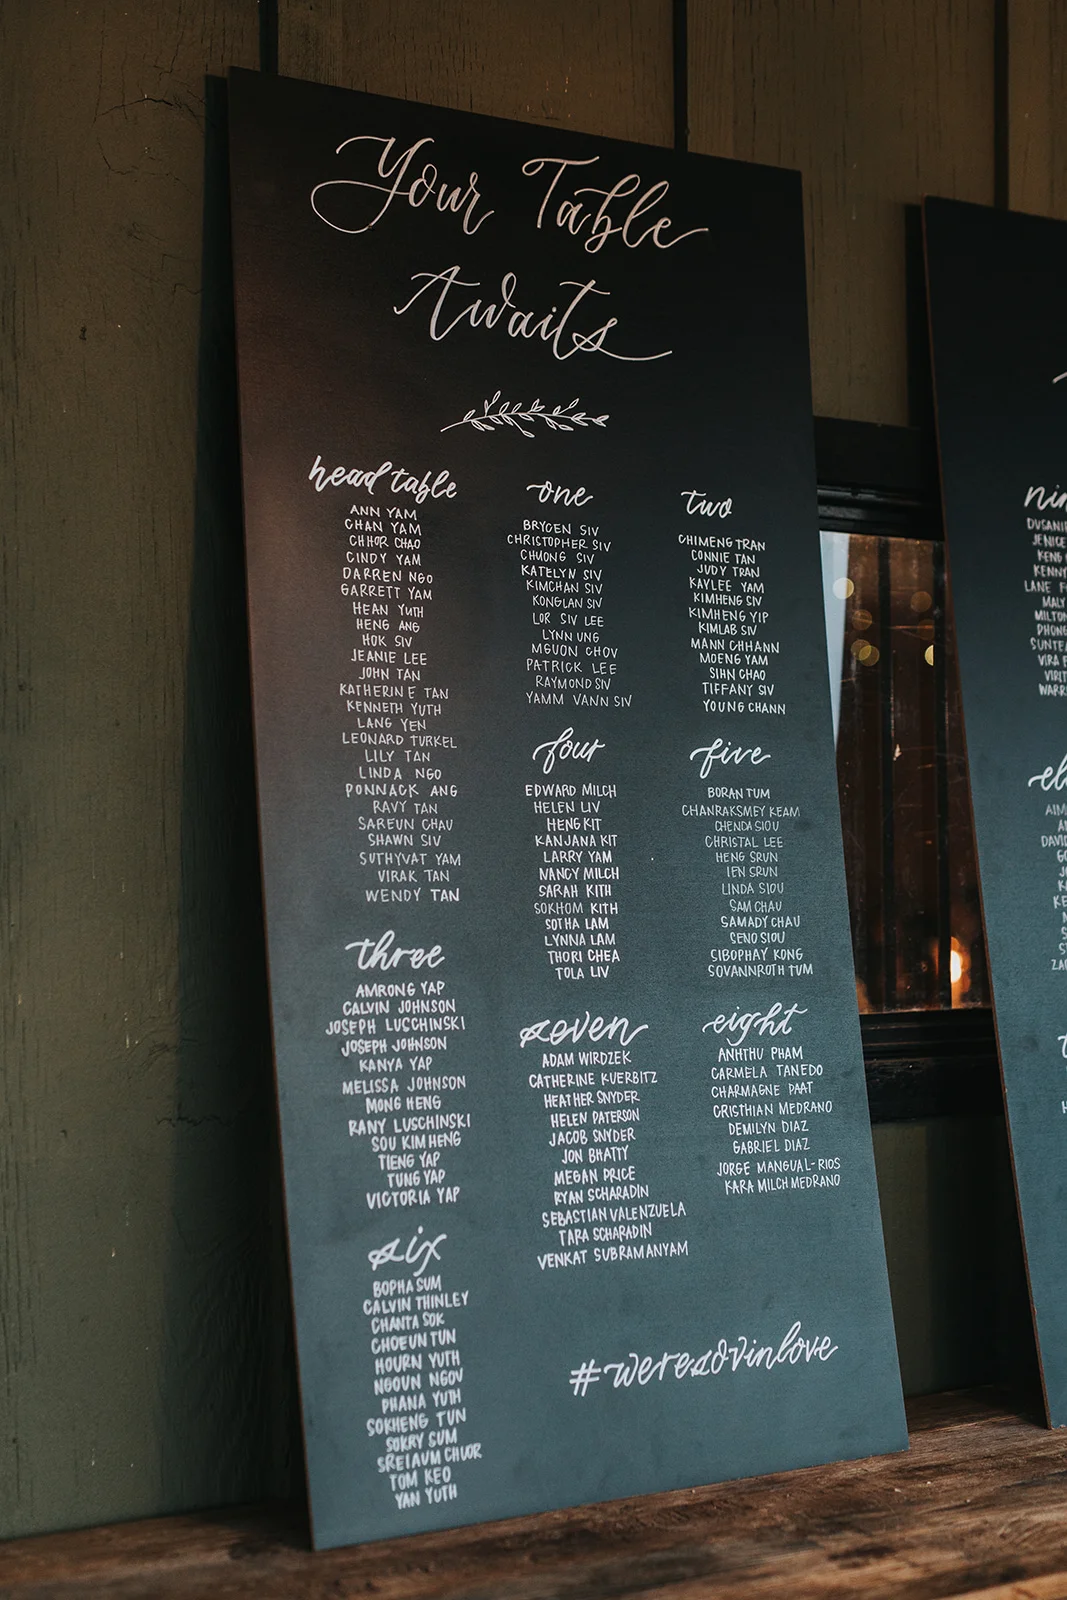 Your Table
Awaits
head table
ANN YAM
CHAN YAM
CHHOR CHAO
CINDY YAM
DARREN NGO
GARRETT YAM
HEAN YUTH
HENG ANG
HOK SIV
JEANIE LEE
JOHN TAN
KATHERINE TAN
KENNETH YUTH
LANG YEN
LEONARD TURKEL
LILY TAN
LINDA NGO
PONNACK ANG
RAVY TAN
SAREUN CHAU
SHAWN SIV
SUTHYVAT YAM
VIRAK TAN
WENDY TAN
one
BRYCEN SIV
CHRISTOPHER SIV
CHUONG SIV
KATELYN SIV
KIMCHAN SIV
KONGLAN SIV
LOR SIV LEE
LYNN UNG
MGUON CHOV
PATRICK LEE
RAYMOND SIV
YAMM VANN SIV
two
CHIMENG TRAN
CONNIE TAN
JUDY TRAN
KAYLEE YAM
KIMHENG SIV
KIMHENG YIP
KIMLAB SIV
MANN CHHANN
MOENG YAM
SIHN CHAO
TIFFANY SIV
YOUNG CHANN
three
AMRONG YAP
CALVIN JOHNSON
JOSEPH LUCCHINSKI
JOSEPH JOHNSON
KANYA YAP
MELISSA JOHNSON
MONG HENG
RANY LUSCHINSKI
SOU KIM HENG
TIENG YAP
TUNG YAP
VICTORIA YAP
four
EDWARD MILCH
HELEN LIV
HENG KIT
KANJANA KIT
LARRY YAM
NANCY MILCH
SARAH KITH
SOKHOM KITH
SOTHA LAM
LYNNA LAM
THORI CHEA
TOLA LIV
five
BORAN TUM
CHANRAKSMEY KEAM
CHENDA SIOU
CHRISTAL LEE
HENG SRUN
IEN SRUN
LINDA SIOU
SAM CHAU
SAMADY CHAU
SENO SIOU
SIBOPHAY KONG
SOVANNROTH TUM
six
BOPHA SUM
CALVIN THINLEY
CHANTA SOK
CHOEUN TUN
HOURN YUTH
NGOUN NGOV
PHANA YUTH
SOKHENG TUN
SOKRY SUM
SREIAUM CHUOR
TOM KEO
YAN YUTH
seven
ADAM WIRDZEK
CATHERINE KUERBITZ
HEATHER SNYDER
HELEN PATERSON
JACOB SNYDER
JON BHATTY
MEGAN PRICE
RYAN SCHARADIN
SEBASTIAN VALENZUELA
TARA SCHARADIN
VENKAT SUBRAMANYAM
eight
ANHTHU PHAM
CARMELA TANEDO
CHARMAGNE PAAT
CRISTHIAN MEDRANO
DEMILYN DIAZ
GABRIEL DIAZ
JORGE MANGUAL-RIOS
KARA MILCH MEDRANO
#weresovinlove
JENICE
KENG
KENNY
LANE
MALY
MILTON
VIRA